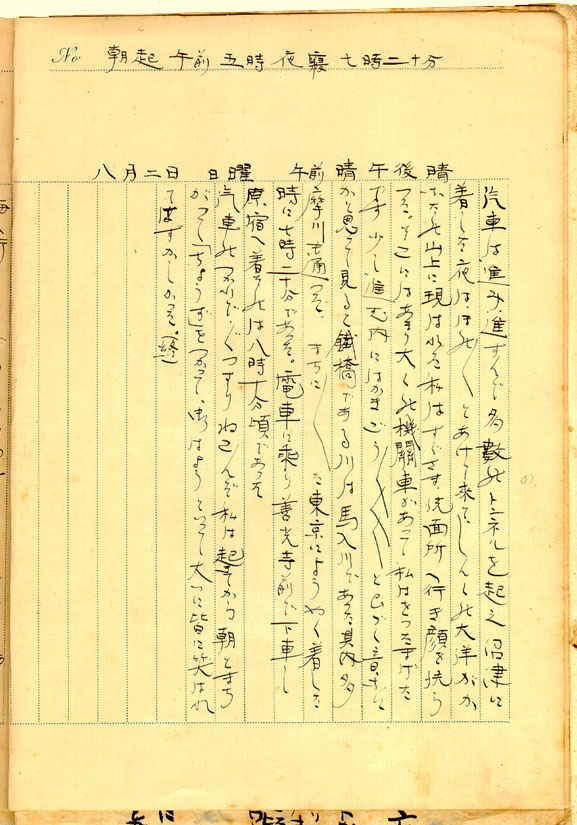 No. 朝起午前五時夜寝七時二十分
八月二日 日曜 午前晴 午後晴
汽車は進み進すんで多数のトンネルを起え沼津に
着した夜はほの〱とあけて来て、しんくの太洋がか
なたの山上に現はれた私はすぐさま洗面所へ行き顔を洗う
つた。そこにはあまり大くの機関車があつて私はきつたまげた
です少し進む内にはかきごう〱〱と とゞく音す
かと思つて見ると鐵橋である川は馬入川であつた其内多
摩川も通つた。すでに〱た東京にようやく着した
時に七時二十分であつた。電車に乗り善光寺前で下車し
原宿へ着たのは八時十分頃であつた
汽車のつかれでぐつすりねこんだ私は起きてから朝とまち
がつて「ちようず」をつかつて、おはようといつて大いに皆に笑はれ
てはずかしかつた。(終)